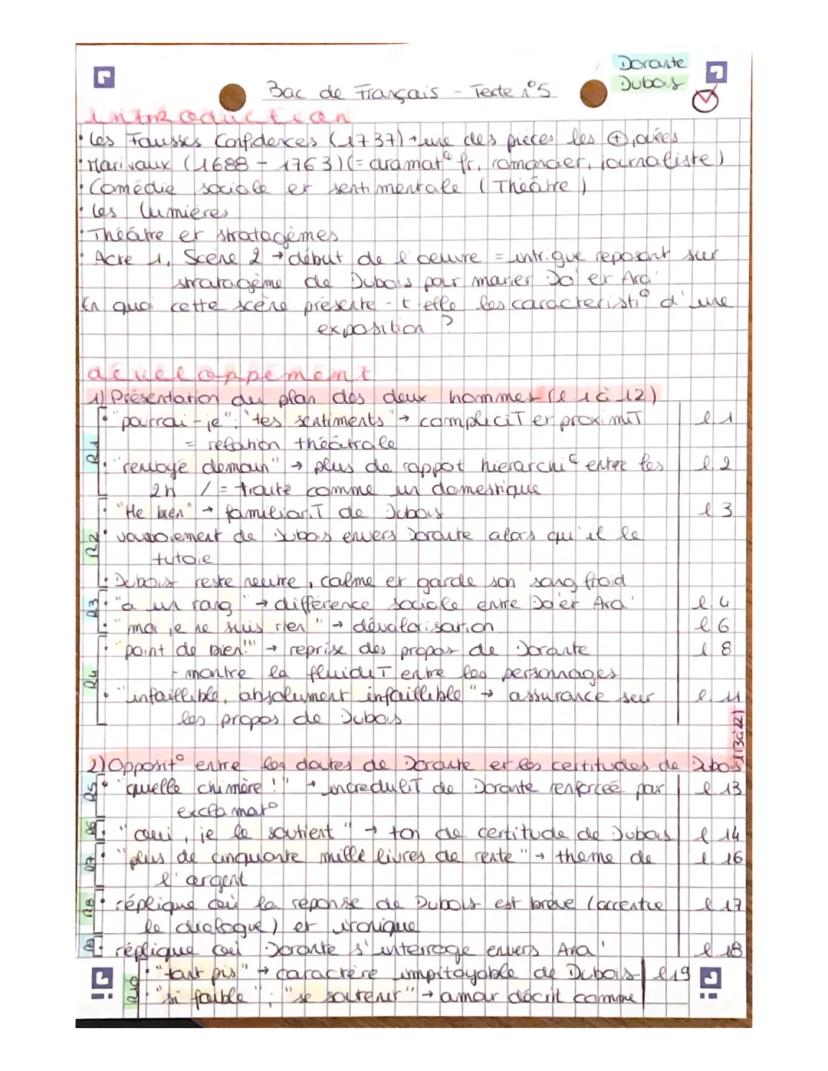 Dorante
Dubois
Bac de Français - Texte n°5
introduction
• Les Fausses Confidences (1737) → une des pièces les ⊕ jouées
• Marivaux (1688 - 1763) (= dramat° fr, romancier, journaliste)
• Comédie sociale et sentimentale (Théâtre)
• Les Lumières
• Théâtre et stratagèmes
• Acte 1, Scène 2 → début de l'oeuvre = intrigue reposant sur
stratagème de Dubois pour marier Do' et Ara'
En quoi cette scène présente-t-elle les caractéristi° d'une
exposition ?
développement
1) Présentation du plan des deux hommes (l 1 à 12)
R1 • "pourrai-je"; "tes sentiments" → compliciT et proximiT l 1
= relation théâtrale
• "renvoyé demain" → plus de rappot hierarchi° entre les l. 2
2h / = traité comme un domestique
• "He bien" → familiariT de Dubois l 3
R2 • vouvoiement de Dubois envers Dorante alors qu'il le
tutoie
• Dubois reste neutre, calme et garde son sang froid
R3 • "a un rang" → différence sociale entre Do' et Ara' l. 4
• "moi je ne suis rien" → dévalorisation l 6
R4 • "point de bien!" → reprise des propos de Dorante l 8
= montre la fluidiT entre les personnages
• "infaillible, absolument infaillible" → assurance sur l. 11
les propos de Dubois
2) Opposit° entre les doutes de Dorante et les certitudes de Dubois (l 13 à 22)
R5 • "quelle chimère !" → increduliT de Dorante renforcée par l 13
exclamat°
R6 • "oui, je le soutient" → ton de certitude de Dubois l 14
R7 • "plus de cinquante mille livres de rente" → thème de l 16
l'argent
R8 • réplique où la réponse de Dubois est brève (accentue l 17
le dialogue) et ironique
R9 • réplique où Dorante s'interroge envers Ara' l 18
R10 • "tant pis" → caractère impitoyable de Dubois l 19
• "si faible"; "se soutenir" → amour décrit comme